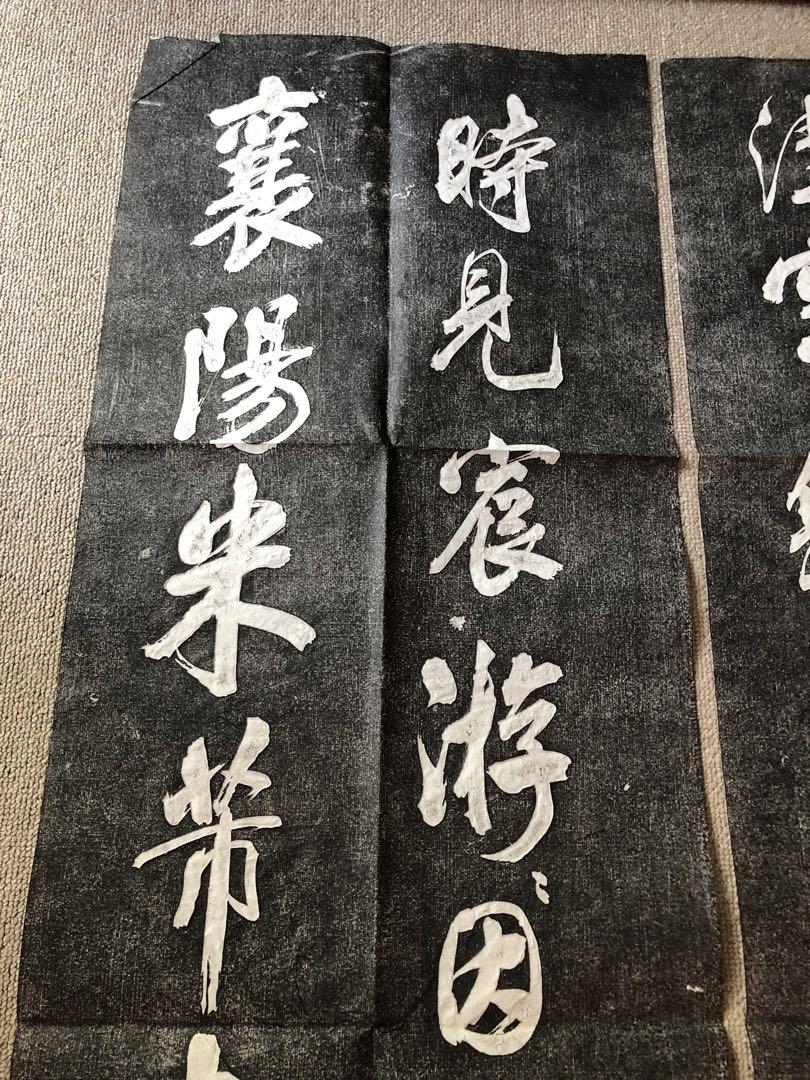 時見宸游因
襄陽米芾